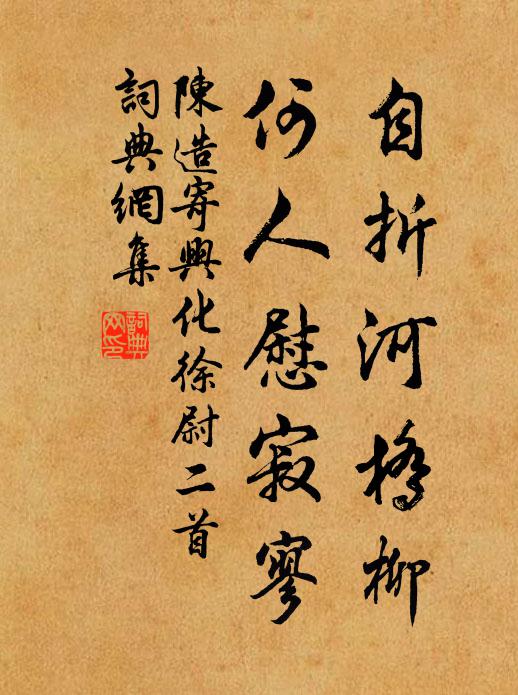 自折河橋柳
何人慰寂寥
陳造寄興化徐尉二首
詞典網集
詞典网印